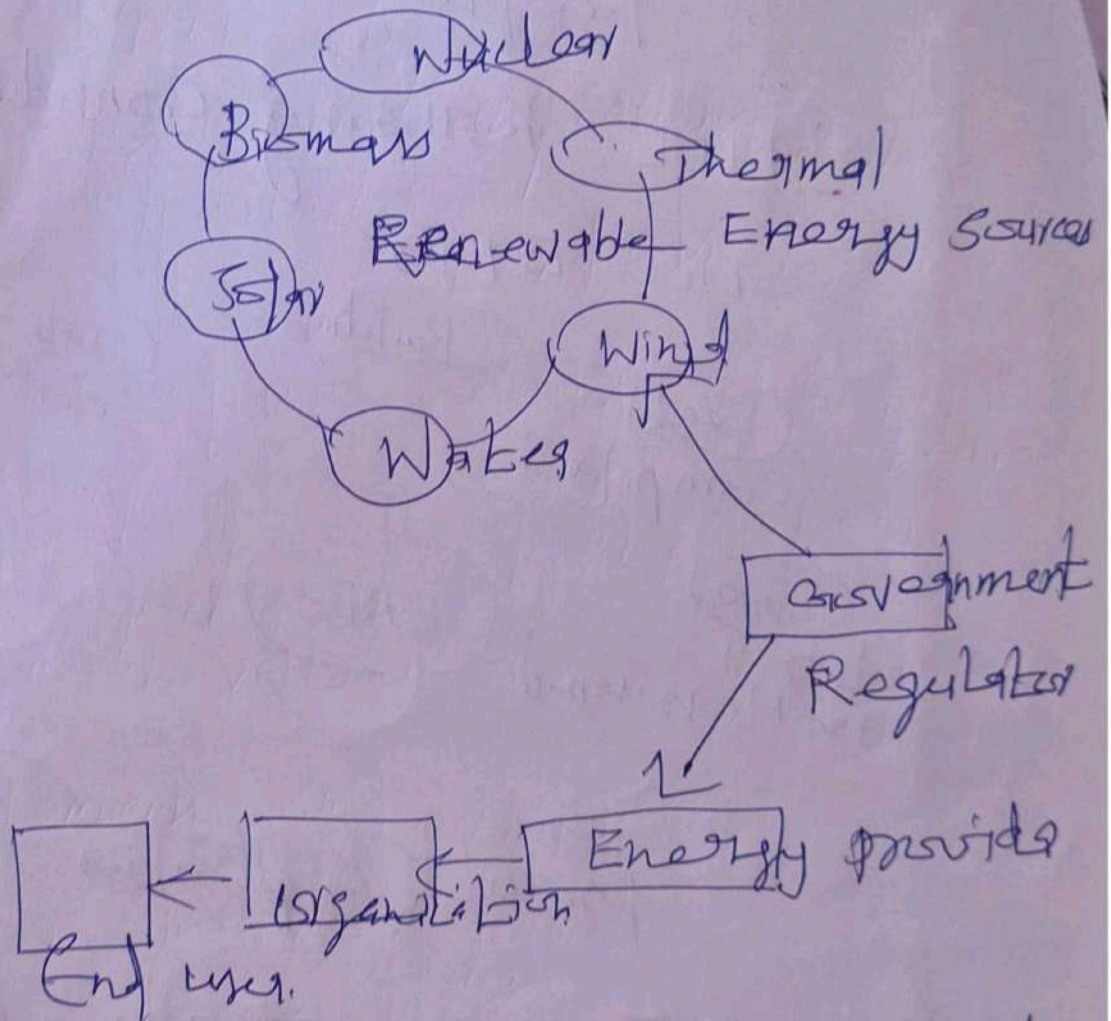 Nuclear
Biomass
Thermal
Renewable Energy Sources
Solar
Wind
Water
Government
Regulator
Energy provide
Organization
End user.